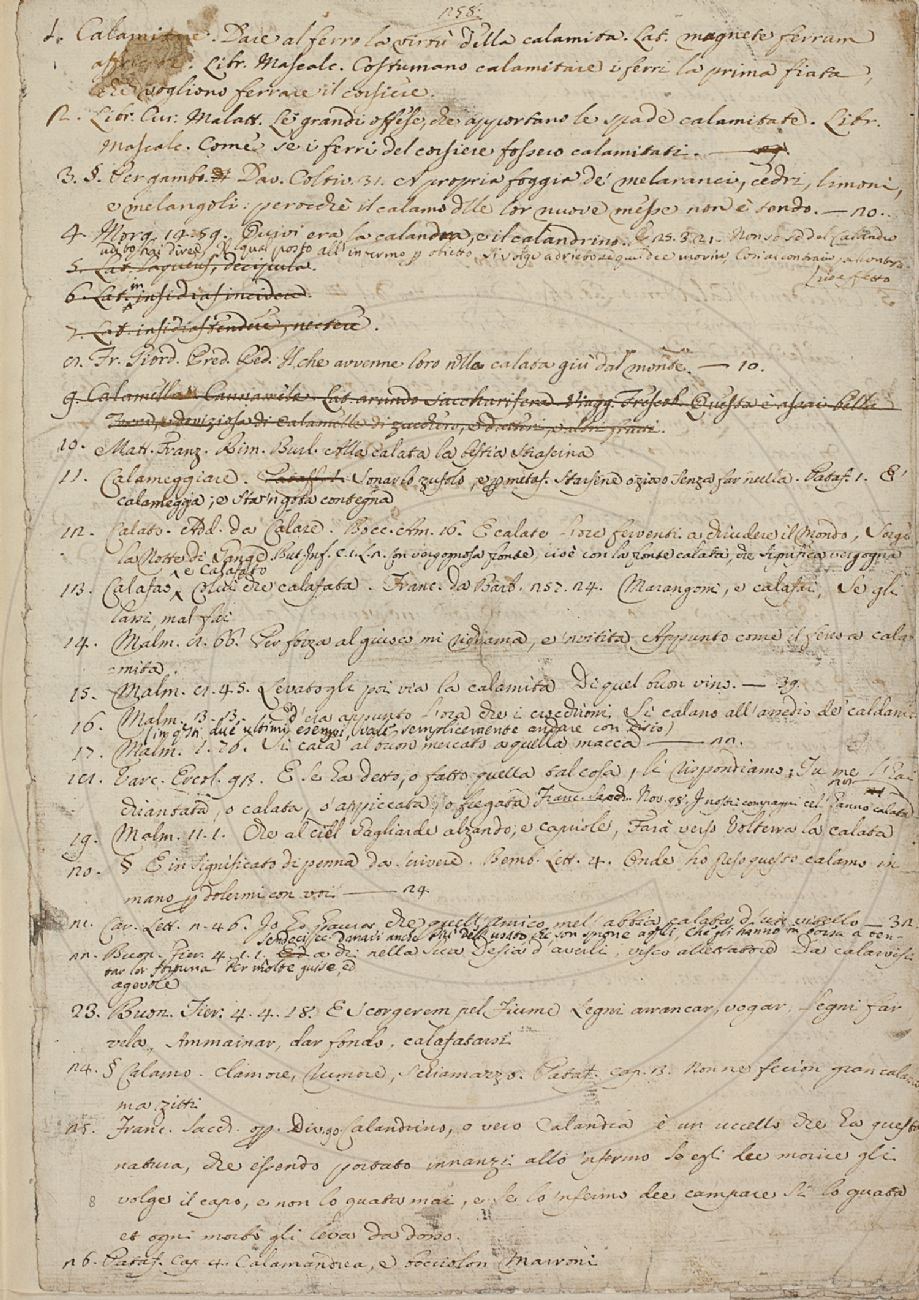 258.
1. Calamitare. Dare al ferro la virtù della calamita. Lat. magnete ferrum
Libr. Mascalc. Costumano calamitare i ferri la prima fiata,
che vogliono ferrare il corsiere.
2. Libr. Cur. Malatt. Le grandi offese, che apportano le spade calamitate. Libr.
Mascalc. Come se i ferri del corsiere fossero calamitati.
3. §. Per gambo. Dav. Coltiv. 31. A propria foggia de' melaranci, cedri, limoni,
e melangoli: perocchè il calamo delle lor nuove messe non è tondo. — 20.
4. Morg. 14. 59. Quivi era la calandra, e il calandrino.
5. Lat. laqueus, decipula.
6. Lat. in insidias incidere.
7. Lat. insidias tendere, nectere.
8. Fr. Giord. Pred. Red. Il che avvenne loro nella calata giù dal monte. — 10.
9. Calamella. Cannamele. Lat. arundo saccharifera. Viagg. Frescob. Questa è assai bella
di calamelle di zucchero, e datteri, e altri frutti.
10. Matt. Franz. Rim. Burl. Alla calata la bestia strascina
11. Calameggiare. Pataff. 1. Sonar lo zufolo, e per metaf. Starsene ozioso senza far nulla. Pataf. 1. E'
calameggia, e sta 'n gota contegna
12. Calato. Add. da Calare. Bocc. Am. 16. E calate l'ore ferventi a chiudere il Mondo, sorge
la Notte di Gange But. Inf. Con vergognosa fronte cioè con la fronte calata, che significa vergogna
e Calafato
13. Calafao, Colui che calafata. Franc. da Barb. 257. 24. Marangoni, e calafai, Se gli
lassi, mal fai
14. Malm. 2. 66. Per forza al giuoco mi richiama, e 'nvita Appunto come il ferro a cala-
mita.
15. Malm. 8. 45. Levatogli poi via la calamita Di quel buon vino. — 39.
16. Malm. 13. 13. D'era appunto l'ora che i crocchioni Si calano all'assedio de' caldani
(in q.sti due ultimi esempi, vale semplicemente andare con disio)
17. Malm. 1. 76. Si cala al buon mercato a quella macca — 22.
18. Varc. Ercol. 93. E se ha detto, o fatto quella tal cosa, si rispondiamo; Tu me l'hai
chiantata, o calata, o appiccata, o fregata Franc. Sacch. Nov. 98. I nostri compagni ce l'hanno calata
19. Malm. 11. 1. Che al ciel gagliarde alzando, e capriole, Farà verso Volterra la calata
20. § E in significato di penna da scrivere. Bemb. Lett. 4. Onde ho preso questo calamo in
mano p dolermi con voi — 24.
21. Car. Lett. 2. 46. Io ho paura, che quell'amico mel' abbia calata di un vitello — 32.
22. Buon. Fier. 4. 1. 1. E a di nella sua pesca d'avoli, visco allettatore Da calarvisi
tar lor fortuna Per molte guise, ed
agevole
23. Buon. Fier: 4. 4. 18. E scorgerem pel Fiume Legni arrancar, vogar, Legni far
vela, Ammainar, dar fondo, calafatarsi
24. § Calamo. Clamore, rumore, schiamazzo. Pataf. cap. 3. Non ne fecion gran calamo
ma zitti
25. Franc. Sacch. op. Div. 90 Calandrino, o vero Calandra è un uccello che ha questa
natura, che essendo portato innanzi allo 'nfermo se egli dee morire gli
volge il capo, e non lo guata mai, e se lo 'nfermo dee campare sì lo guata
et ogni morbo gli leva da dosso.
26. Pataf. Cap. 4. Calamandrea, e bocciolon marroni
8